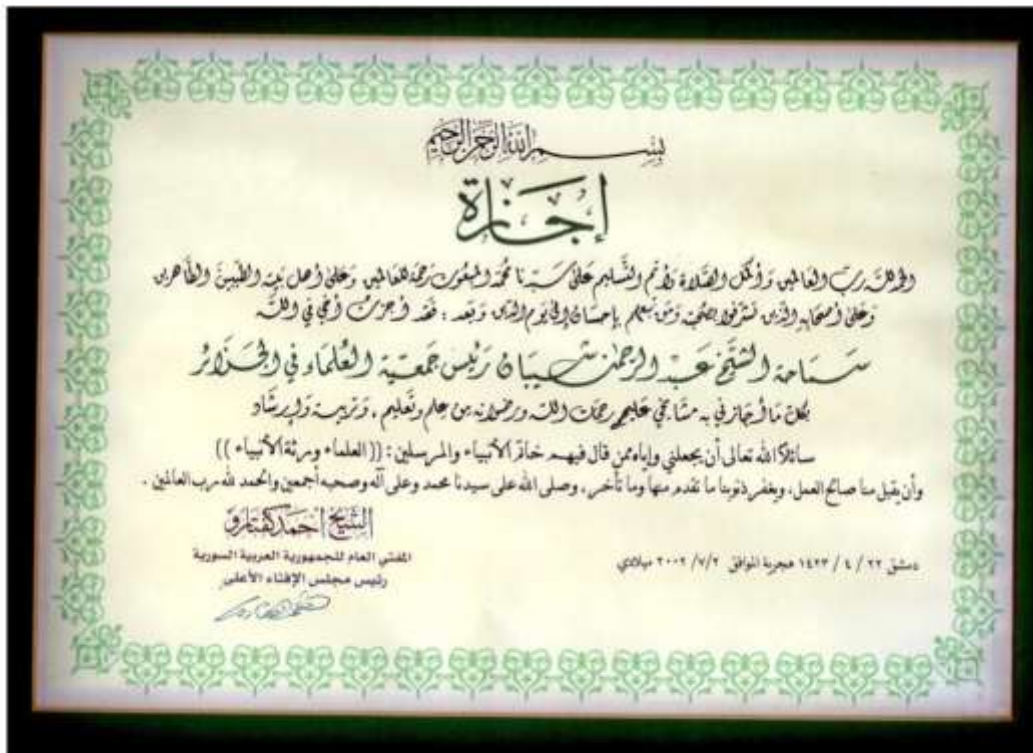 بسم الله الرحمن الرحيم
إجازة
الحمد لله رب العالمين وأكمل الصلاة وأتم التسليم على سيدنا محمد المبعوث رحمة للعالمين وعلى أهل بيته الطيبين الطاهرين
وعلى أصحابه الذين تشرفوا بصحبته ومن تبعهم بإحسان إلى يوم الدين وبعد : فقد أجزت أخي في الله
سماحة الشيخ عبد الرحمن شيبان رئيس جمعية العلماء في الجزائر
بكل ما أجازني به مشايخي عليهم رحمات الله ورضوانه من علم وتعليم ، وتربية وإرشاد
سائلاً الله تعالى أن يجعلني وإياه ممن قال فيهم خاتم الأنبياء والمرسلين : (( العلماء ورثة الأنبياء ))
وأن يقبل منا صالح العمل، ويغفر ذنوبنا ما تقدم منها وما تأخر، وصلى الله على سيدنا محمد وعلى آله وصحبه أجمعين والحمد لله رب العالمين .
الشيخ أحمد كفتارو
المفتي العام للجمهورية العربية السورية
رئيس مجلس الإفتاء الأعلى
دمشق ٢٢ / ٤ / ١٤٢٣ هجرية الموافق ٢ /٧/ ٢٠٠٢ ميلادي